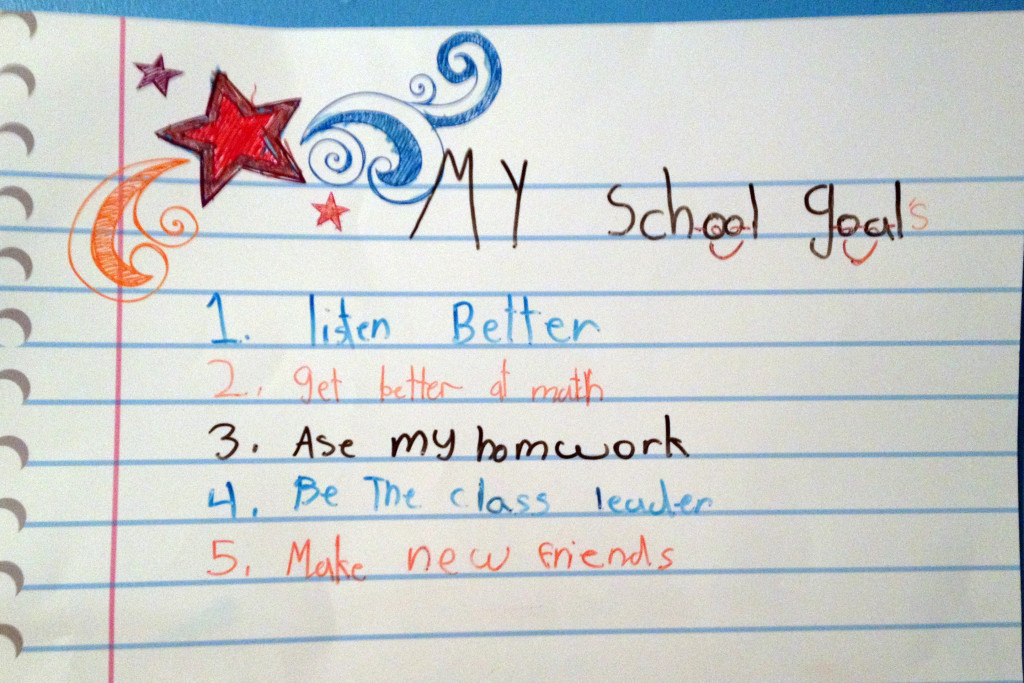 MY School goal's
1. listen Better
2. get better at math
3. Ase my homwork
4. Be The class leader
5. Make new Friends